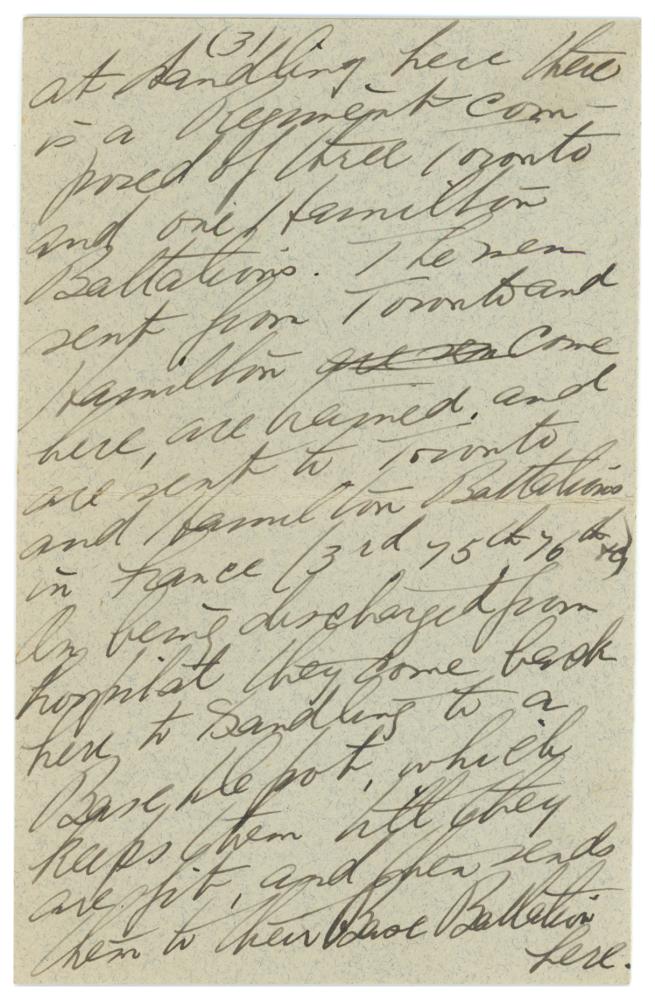 (3)
at Sandling here there
is a Regiment com-
posed of three Toronto
and one Hamilton
Battalions. The men
sent from Toronto and
Hamilton come
here, are trained, and
are sent to Toronto
and Hamilton Battalions
in France (3rd 75th 76th
On being discharged from
hospital they come back
here to Sandling to a
Base Depot, which
keeps them till they
are fit, and then sends
them to their Base Battalion
here.